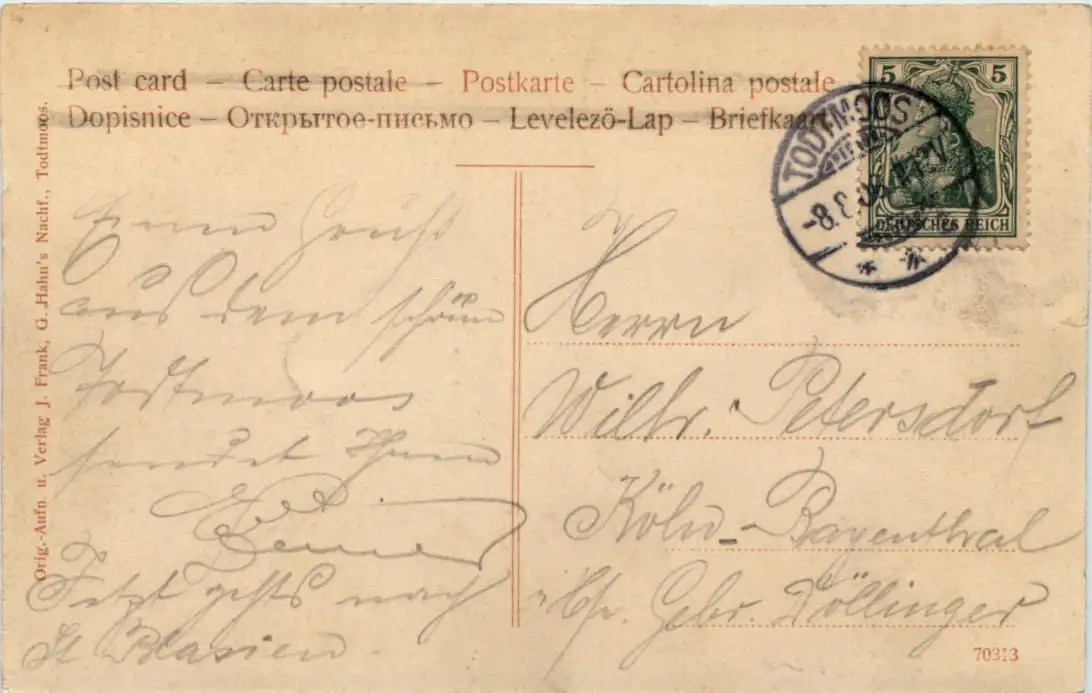 Post card – Carte postale – Postkarte – Cartolina postale
Dopisnice – Открытое-письмо – Levelező-Lap – Briefkaart
5 5
DEUTSCHES REICH
TODTMOOS
Orig.-Aufn u. Verlag J. Frank, G. Hahn's Nachf., Todtmoos.
Einen Gruß
aus dem schönen
Todtmoos
sendet Ihnen
Jetzt gehts nach
St Blasien.
Herrn
Wilh. Petersdorf
Köln-Bayenthal
Gebr. Döllinger
70313